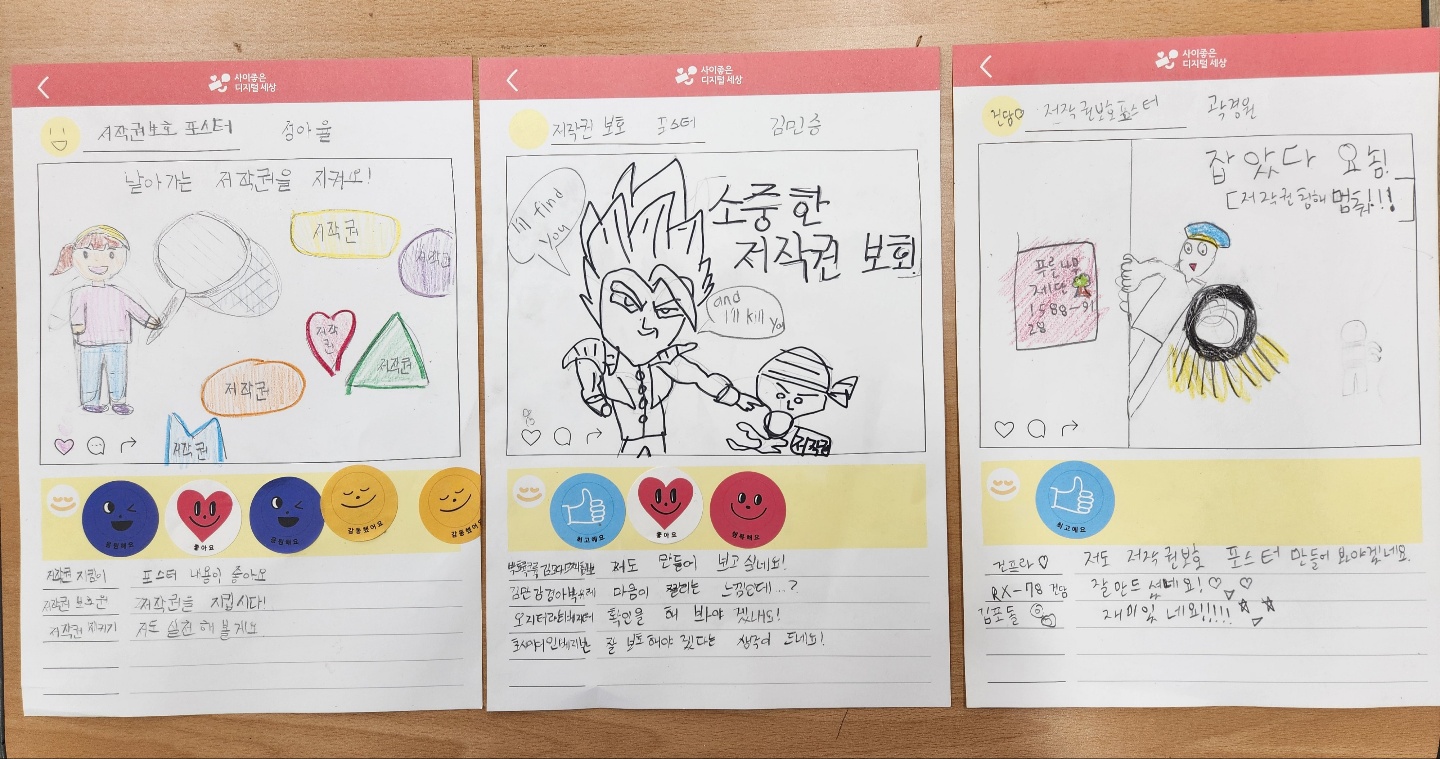 사이좋은
디지털 세상
저작권보호 포스터 정아율
날아가는 저작권을 지켜요!
저작권
저작권
저작
권
저작권
저작권
저작권
응원해요
좋아요
응원해요
감동했어요
감동했어요
저작권 지킴이 포스터 내용이 좋아요
저작권 보호원 저작권을 지킵시다!
저작권 지키기 저도 실천 해 볼게요
사이좋은
디지털 세상
저작권 보호 포스터 김민승
I'll find
you
소중한
저작권 보호
and
I'll kill you
저작권
최고예요
좋아요
행복해요
저도 만들어 보고 싶네요!
마음이 찔리는 느낌인데...?
확인을 해 봐야 겠네요!
잘 보호해야 겠다는 생각이 드네요!
사이좋은
디지털 세상
건담♡ 저작권보호포스터 곽경원
잡았다 요놈!
[저작권침해 멈춰!!]
푸른나무
재단
1588-91
28
최고예요
건프라♡ 저도 저작권보호 포스터 만들어 봐야겠네요.
RX-78 건담 잘만드셨네요!♡♡♡
김포돌 재미있네요!!!!!